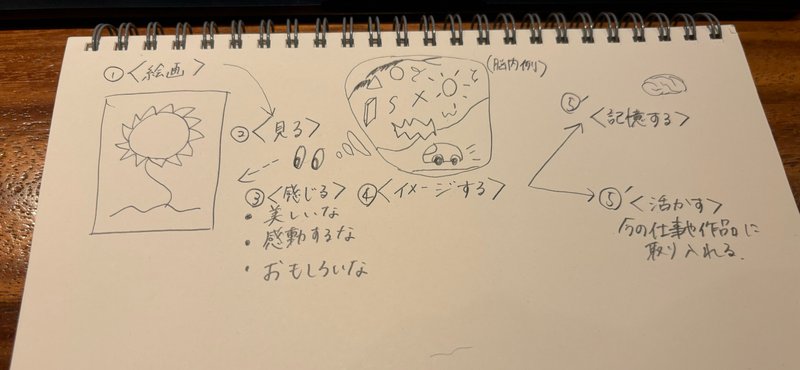 ① <絵画>
② <見る>
③ <感じる>
・美しいな
・感動するな
・おもしろいな
(脳内例)
④ <イメージする>
⑤ <記憶する>
⑤' <活かす>
今の仕事や作品に
取り入れる.